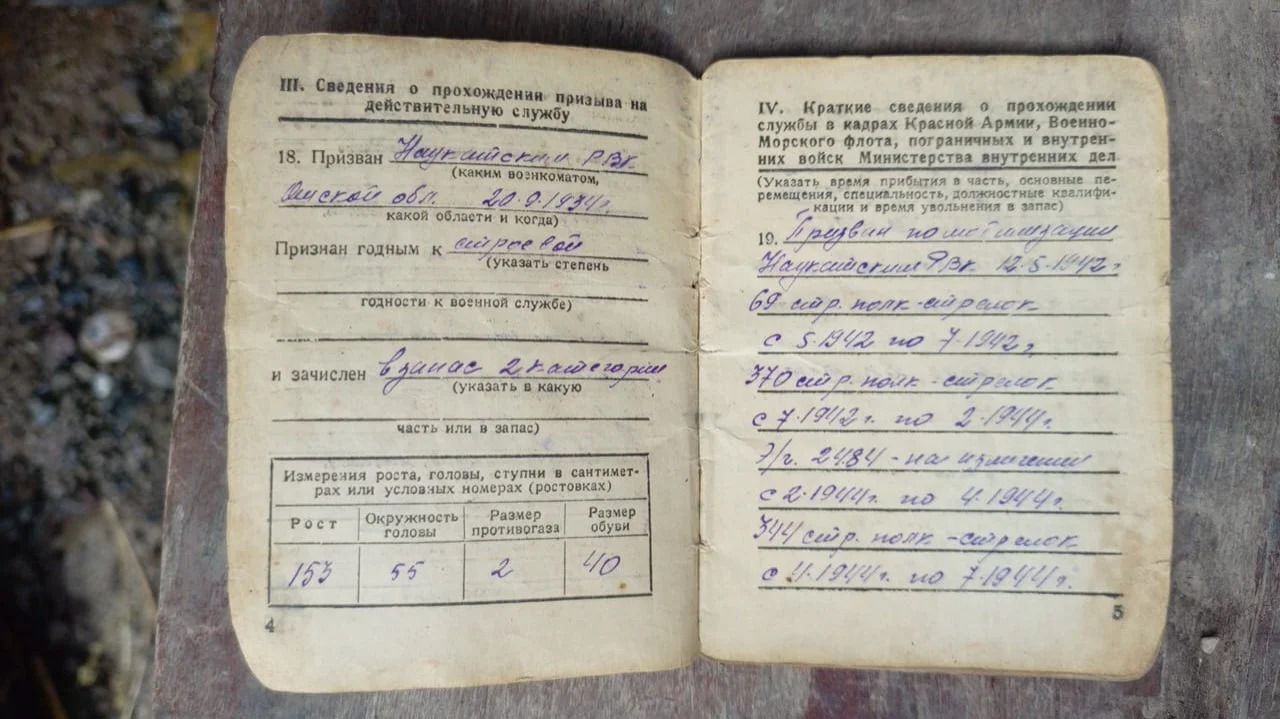 III. Сведения о прохождении призыва на
действительную службу
18. Призван Наукатским РВК
(каким военкоматом,
Ошской обл. 20.9.1934г.
какой области и когда)
Признан годным к строевой
(указать степень
годности к военной службе)
и зачислен в запас 2 категории
(указать в какую
часть или в запас)
Измерения роста, головы, ступни в сантимет-
рах или условных номерах (ростовках)
Рост
Окружность
головы
Размер
противогаза
Размер
обуви
153 55 2 40
4
IV. Краткие сведения о прохождении
службы в кадрах Красной Армии, Военно-
Морского флота, пограничных и внутрен-
них войск Министерства внутренних дел
(Указать время прибытия в часть, основные пе-
ремещения, специальность, должностные квалифи-
кации и время увольнения в запас)
19. Призван по мобилизации
Наукатским РВК 12.5.1942г
69 стр. полк-стрелок
с 5.1942 по 7.1942г.
370 стр. полк-стрелок
с 7.1942г. по 2.1944г.
Э/г. 2484-на излечении
с 2.1944г. по 4.1944г.
344 стр. полк-стрелок
с 4.1944г. по 7.1944г.
5